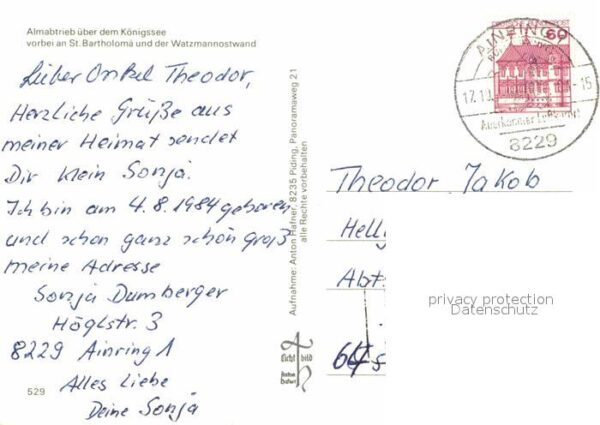 Almabtrieb über dem Königssee
vorbei an St. Bartholomä und der Watzmannostwand
Lieber Onkel Theodor,
Herzliche Grüße aus
meiner Heimat sendet
Dir klein Sonja.
Ich bin am 4.8.1984 geboren
und schon ganz schön groß
meine Adresse
Sonja Dumberger
Höglstr. 3
8229 Ainring 1
Alles Liebe
Deine Sonja
529
Aufnahme: Anton Hafner, 8235 Piding, Panoramaweg 21
alle Rechte vorbehalten
Licht bild
Anton
Hafner
60
AINRING
17.10.
-15
8229
Theodor Jakob
Hell
Abt.
64
privacy protection
Datenschutz